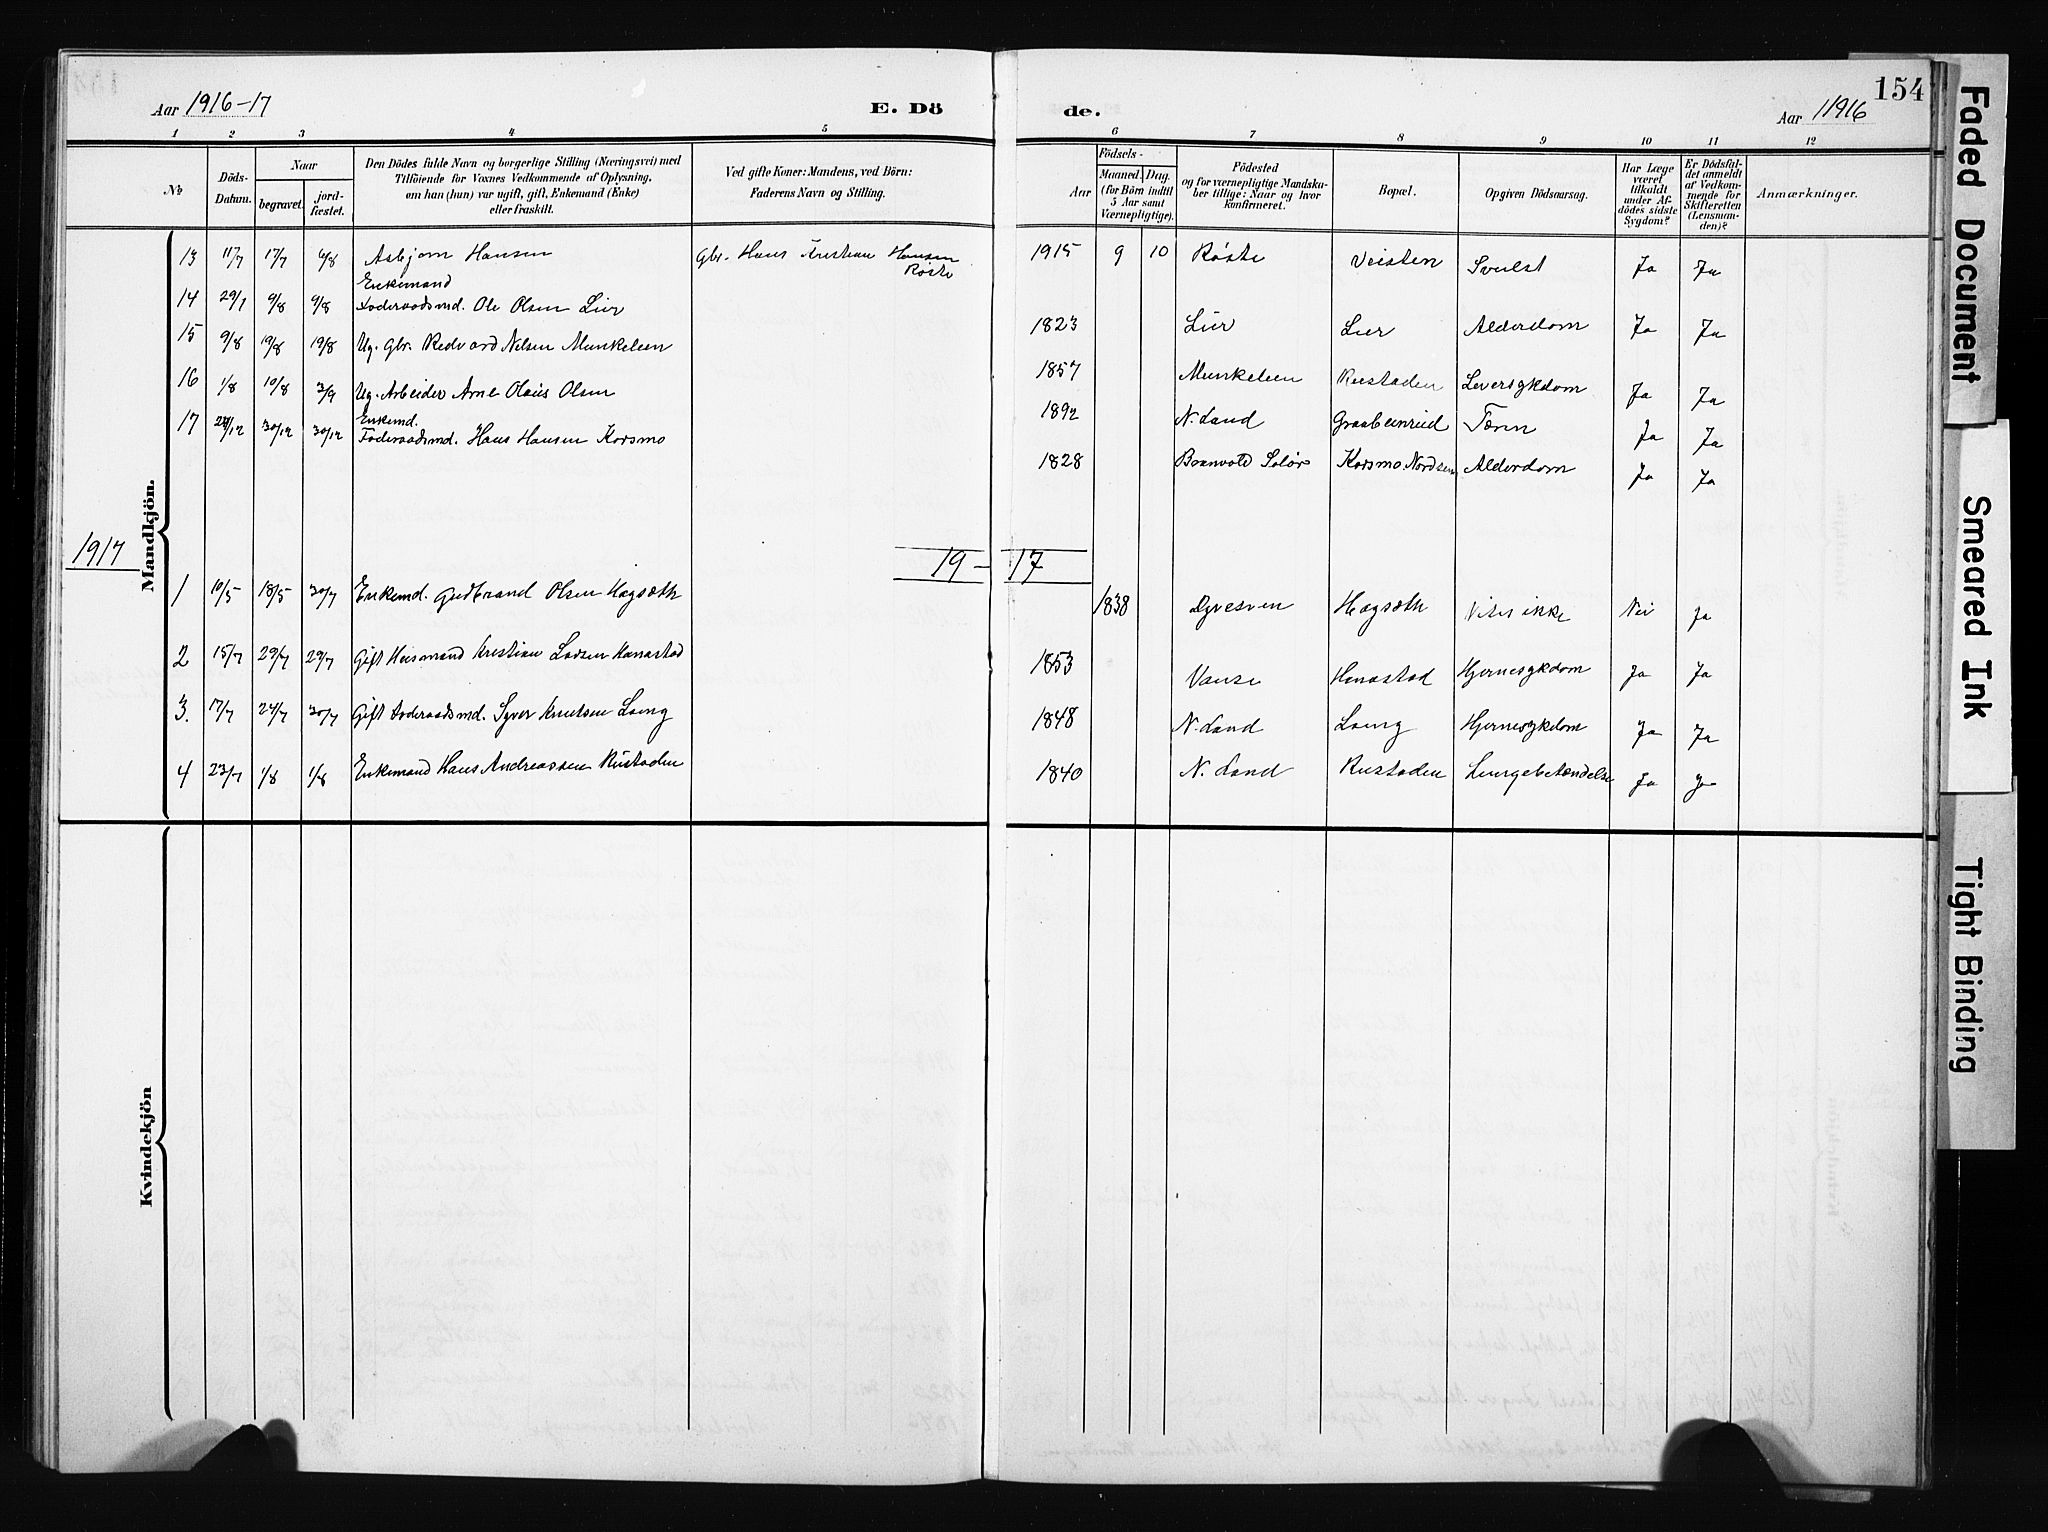 Aar 1916-17
E. Dö
de.
Aar 11916
154
1 2 3 4 5 6 7 8 9 10 11 12
No
Döds-Datum.
Naar
begravet.
jordfæstet.
Den Dödes fulde Navn og borgerlige Stilling (Næringsvei) med
Tilföiende for Voxnes Vedkommende af Oplysning,
om han (hun) var ugift, gift, Enkemand (Enke)
eller fraskilt.
Ved gifte Koner: Mandens, ved Börn:
Faderens Navn og Stilling.
Födsels-
Aar
Maaned. Dag.
(for Börn indtil
5 Aar samt
Værnepligtige).
Födested
og for værnepligtige Mandska-
ber tillige: Naar og hvor
konfirmeret.
Bopæl.
Opgiven Dödsaarsag.
Har Læge
været
tilkaldt
under Af-
dödes sidste
Sygdom?
Er Dödsfal-
det anmeldt
af Vedkom-
mende for
Skifteretten
(Lensman-
den)?
Anmærkninger.
Mandkjön.
13 11/7 17/7 6/8 Asbjørn Hansen Gbr. Hans Kristian Hansen Røste 1915 9 10 Røste Vristen Svulst Ja Ja
Enkemand
14 29/7 9/8 9/8 Foderaadsmd. Ole Olsen Lier 1823 Lier Lier Alderdom Ja Ja
15 9/8 19/8 19/8 Ug. Gbr. Redvard Nelsen Munkelien 1857 Munkelien Rustaden Leversygdom Ja Ja
16 1/8 10/8 3/9 Ug. Arbeider Arne Olaus Olsen 1892 N. Land Graabeinrud Tæring Ja Ja
Enkemd.
17 30/12 30/12 Føderaadsmd. Hans Hansen Korsmo 1828 Brandvold Solør Korsmo Nordsinni Alderdom Ja Ja
1917
19 - 17
1 10/5 18/5 30/7 Enkemd. Gudbrand Olsen Hagsæth 1838 Dyresven Hagsæth Vites ikke Nei Ja
2 15/7 29/7 29/7 Gift Husmand Kristian Larsen Hanastad 1853 Vanse Hanastad Hjernesygdom Ja Ja
3. 17/7 24/7 30/7 Gift Foderaadsmd. Syver Knutsen Lang 1848 N. Land Lang Hjernesygdom Ja Ja
4 23/7 1/8 1/8 Enkemand Hans Andreassen Rustaden 1840 N. Land Rustaden Lungebetændelse Ja Ja
Kvindekjön
Faded Document
Smeared Ink
Tight Binding